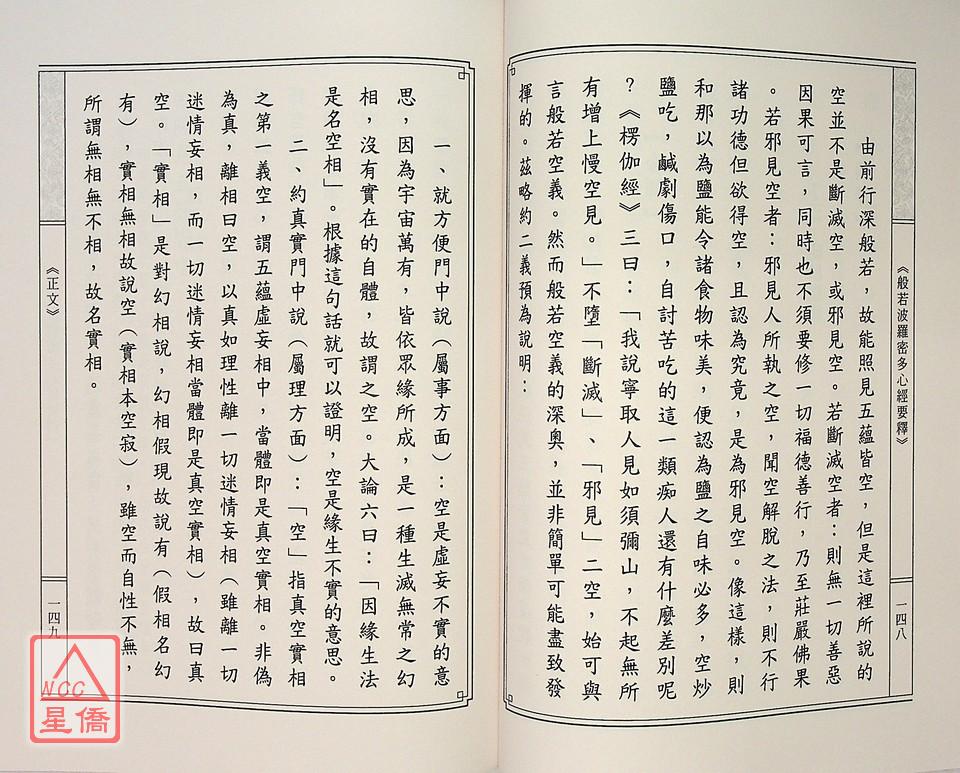 《般若波羅密多心經要釋》
一四八
由前行深般若，故能照見五蘊皆空，但是這裡所說的
空並不是斷滅空，或邪見空。若斷滅空者：則無一切善惡
因果可言，同時也不須要修一切福德善行，乃至莊嚴佛果
。若邪見空者：邪見人所執之空，聞空解脫之法，則不行
諸功德但欲得空，且認為究竟，是為邪見空。像這樣，則
和那以為鹽能令諸食物味美，便認為鹽之自味必多，空炒
鹽吃，鹹劇傷口，自討苦吃的這一類痴人還有什麼差別呢
？《楞伽經》三曰：「我說寧取人見如須彌山，不起無所
有增上慢空見。」不墮「斷滅」、「邪見」二空，始可與
言般若空義。然而般若空義的深奧，並非簡單可能盡致發
揮的。茲略約二義預為說明：
一、就方便門中說（屬事方面）：空是虛妄不實的意
思，因為宇宙萬有，皆依眾緣所成，是一種生滅無常之幻
相，沒有實在的自體，故謂之空。大論六曰：「因緣生法
是名空相」。根據這句話就可以證明，空是緣生不實的意思。
二、約真實門中說（屬理方面）：「空」指真空實相
之第一義空，謂五蘊虛妄相中，當體即是真空實相。非偽
為真，離相曰空，以真如理性離一切迷情妄相（雖離一切
迷情妄相，而一切迷情妄相當體即是真空實相），故曰真
空。「實相」是對幻相說，幻相假現故說有（假相名幻
有），實相無相故說空（實相本空寂），雖空而自性不無，
所謂無相無不相，故名實相。
《正文》
一四九
NCC
星僑